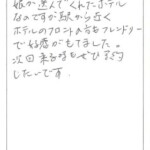 娘が選んでくれたホテル
なのですが駅から近く
ホテルのフロントの方もフレンドリー
で好感がもてました。
次回来る時もぜひ予約
したいです。